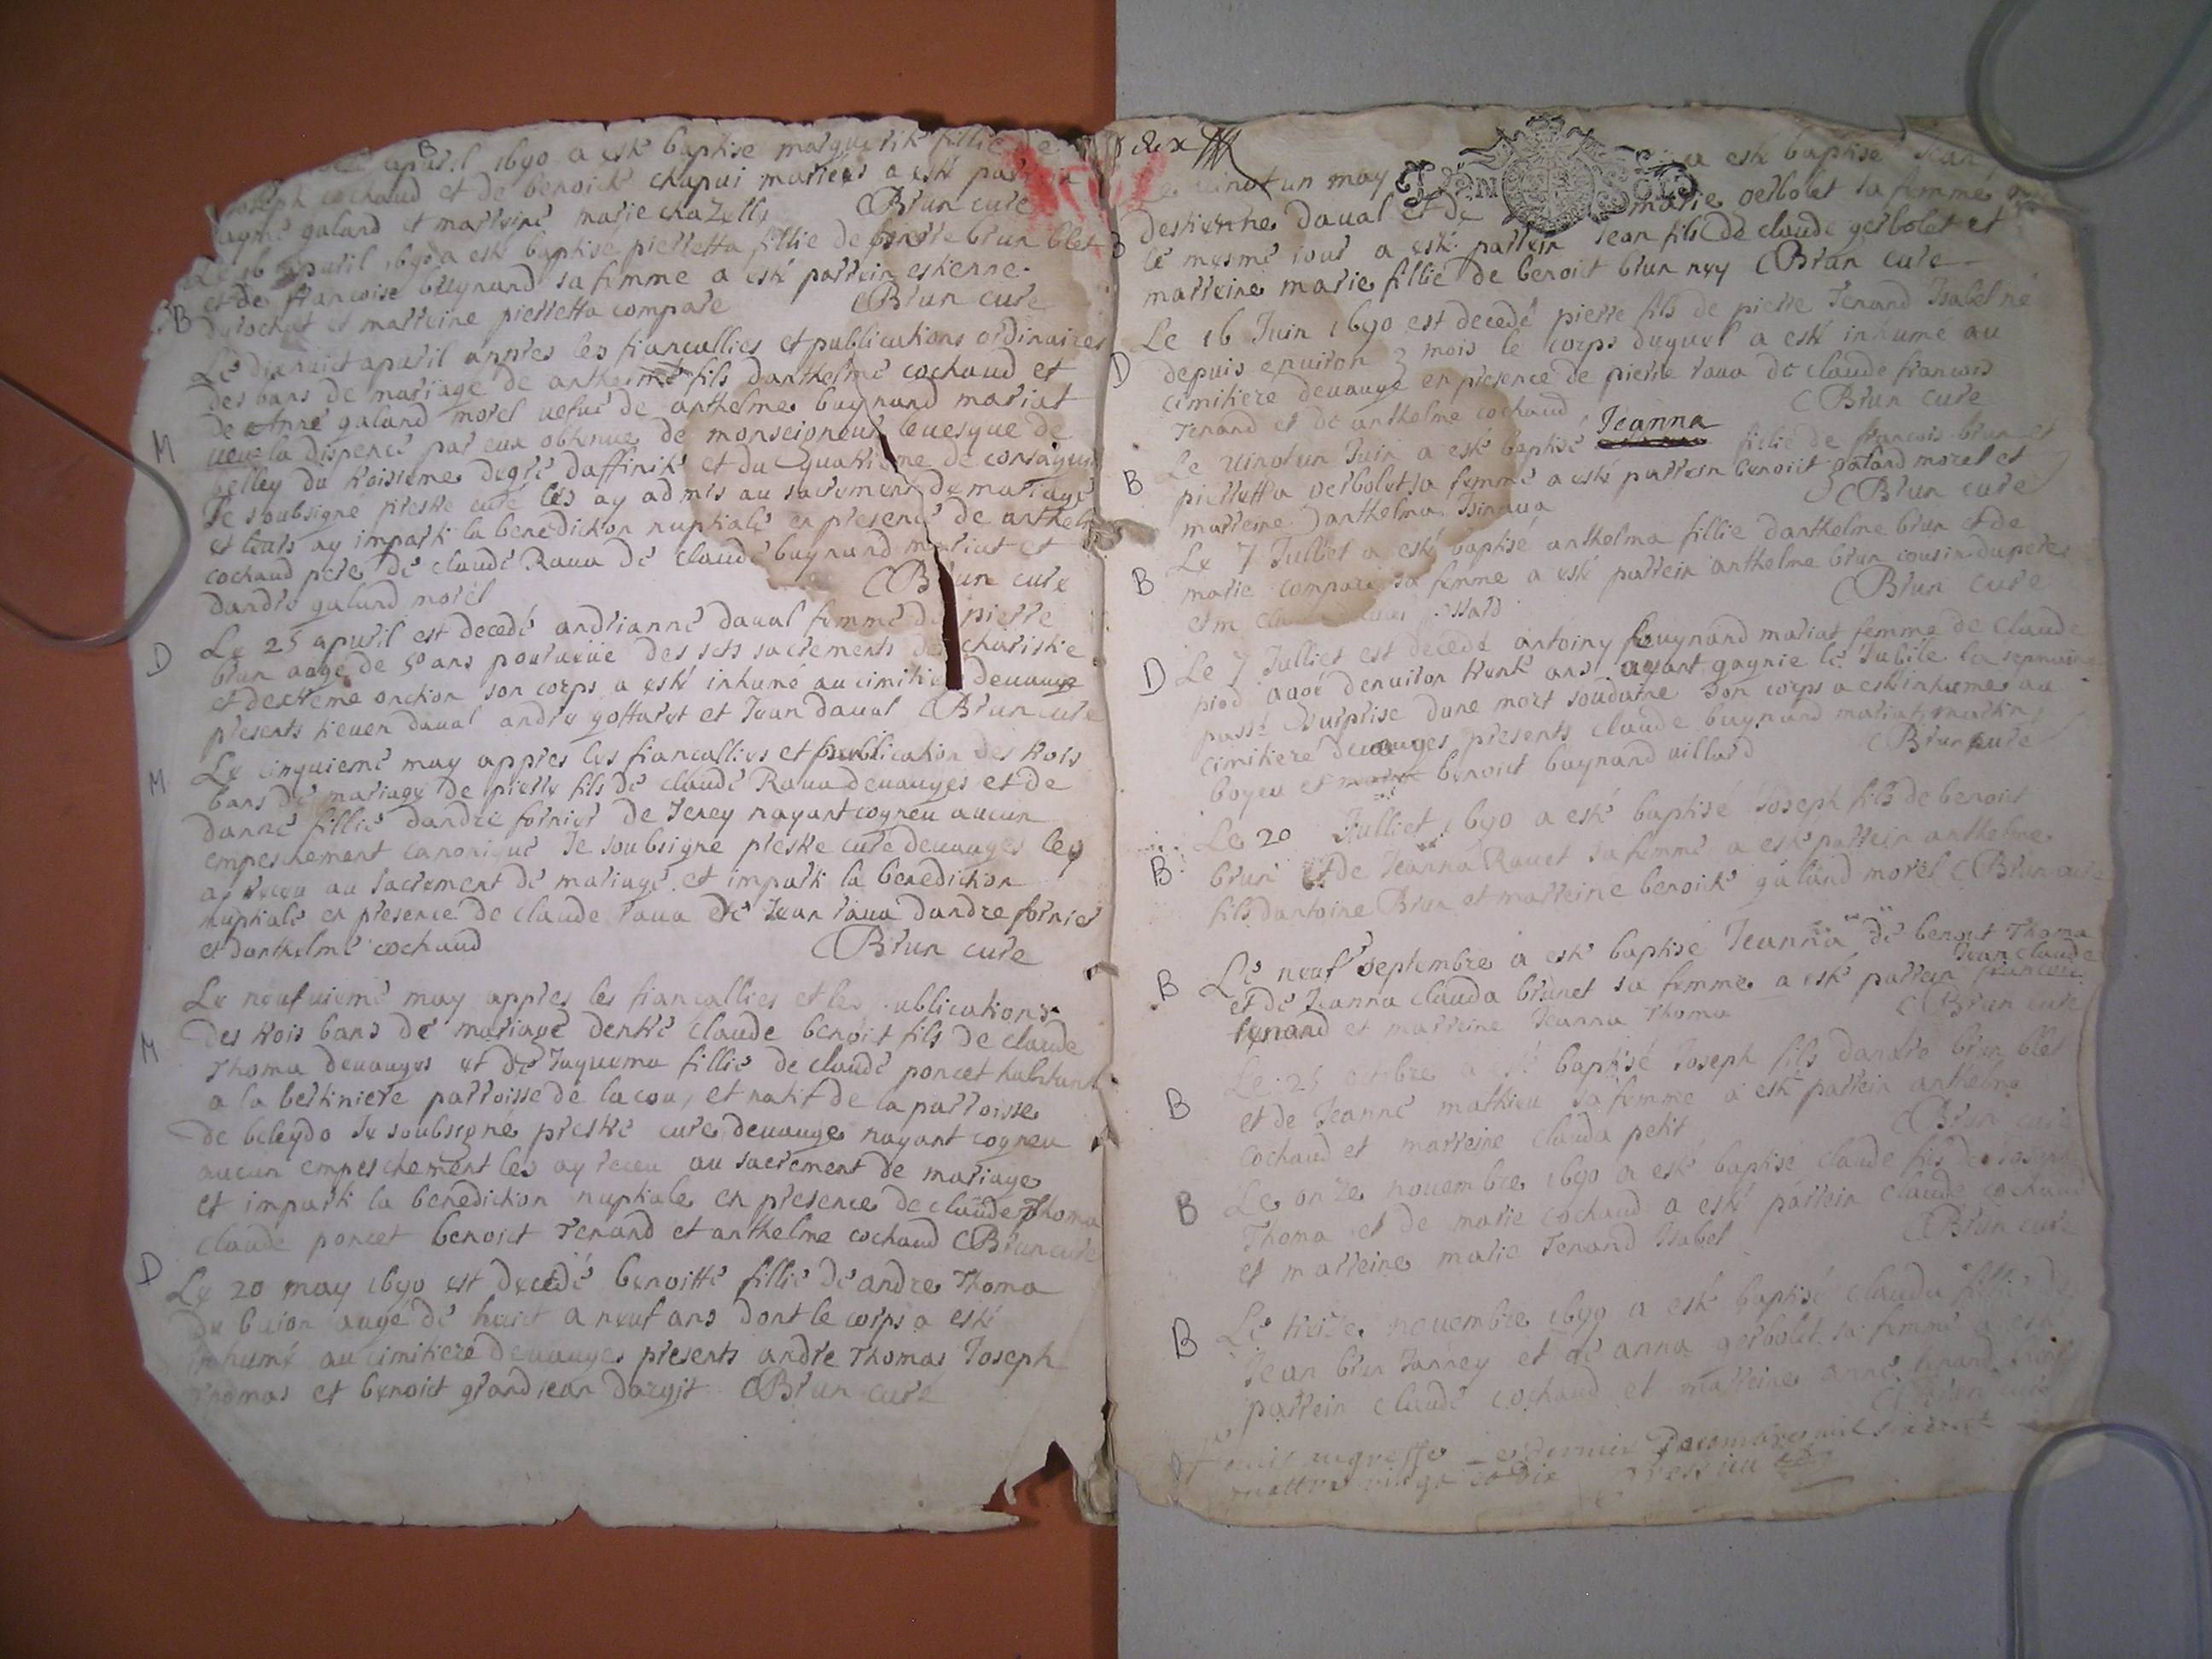 B
apuril 1690 a esté baptisé marguerite fillie de
Joseph cochaud et de benoicte chapui mariés a esté parrein
aymé galand et marreine marie chazelle C Brun curé
Le 16 apuril 1690 a esté baptisé pierretta fillie de pierre brun blet
B et de francoise buynand sa femme a esté parrein estienne
durochat et marreine pierretta compare C Brun curé
Le dixhuict apuril appres les fiancallies et publications ordinaires
des bans de mariage de anthelme fils danthelme cochaud et
de Anne galand morel uefue de anthelme buynand mariat
M ueu la dispence par eux obtenue de monseigneur leuesque de
belley du troisieme degré daffinité et du quatrieme de consaguin
Je soubsigné prestre curé les ay admis au sacrement de mariage
et leurs ay imparti la benediction nuptiale en presence de anthel
cochaud pere de claude Raua de claude buynand mariat et
dandre galand morel C Brun curé
D Le 25 apuril est decedé andrianne daual femme de pierre
brun aagé de 50 ans pourueue des sts sacrements de charistie
et dextreme onction son corps a esté inhumé au cimitiere deuauge
presents tieuen daual andre goffaret et Jean daual C Brun curé
Le cinquieme may appres les fiancallies et publication des trois
M bans de mariage de pierre fils de claude Raua deuauges et de
danne fillie dandre fornier de Jerey nayant cogneu aucun
empeschement canonique Je soubsigne prestre curé deuauges les
ay receu au sacrement de mariage et imparti la benediction
nuptiale en presence de claude raua de Jean raua dandre fornier
et danthelme cochaud C Brun curé
Le neufuieme may appres les fiancallies et les publications
M des trois bans de mariage dentre claude benoit fils de claude
Thoma deuauges et de Jaquema fillie de claude poncet habitant
a la bertiniere parroisse de lacou, et natif de la parroisse
de beleydo Je soubsigné prestre curé deuauge nayant cogneu
aucun empeschement les ay receu au sacrement de mariage
et imparti la benediction nuptiale en presence de claude Thoma
claude poncet benoict Tenand et anthelme cochaud C Brun curé
D
Le 20 may 1690 est decedé benoitte fillie de andre Thoma
du buion aagé de huict a neuf ans dont le corps a esté
inhumé au cimitiere deuauges presents andre Thomas Joseph
Thomas et benoict grandjean C Brun curé
dex
Le uinct un may a esté baptisé Jean
destienne daual et de marie gerbolet sa femme
B le mesme iour a esté parrein Jean fils de claude gerbolet et
marreine marie fillie de benoict brun ney C Brun curé
Le 16 Juin 1690 est decedé pierre fils de pierre Tenand Isabel né
D depuis enuiron 3 mois le corps duquel a esté inhumé au
cimitiere deuauge en presence de pierre raua de claude francois
Tenand et de anthelme cochaud C Brun curé
Le uinct un Juin a esté baptisé Jeanna fillie de francois brun et
B pierretta gerbolet sa femme a esté parrein benoict galand morel et
marreine danthelma C Brun curé
Le 7 Julliet a esté baptisé anthelma fillie danthelme brun et de
B marie compare sa femme a esté parrein anthelme brun cousin du pere
et m C Brun curé
D Le 7 Julliet est decedé antoiny buynand mariat femme de claude
piod aagé denuiron trente ans ayant gagnie le Jubile la sepmaine
passé surprise dune mort soudaine son corps a esté inhumé au
cimitiere deuauges presents claude buynand mariat martin
boyeu et benoict buynand uillard C Brun curé
Le 20 Julliet 1690 a esté baptisé Joseph fils de benoict
B brun et de Jeanna Rauet sa femme a esté parrein anthelme
fils dantoine Brun et marreine benoicte galand morel C Brun curé
Le neuf septembre a esté baptisé Jeanna de benoit Thoma
B et de Jeanna clauda brunet sa femme a esté parrein Jean claude francois
tenand et marreine Jeanna Thoma C Brun curé
Le 25 octobre a esté baptisé Joseph fils dandre brun blet
B et de Jeanne mathieu sa femme a esté parrein anthelme
cochaud et marreine clauda petit C Brun curé
B Le onze nouembre 1690 a esté baptisé claude fils de Joseph
Thoma et de marie cochaud a esté parrein claude cochaud
et marreine marie Tenand Isabel C Brun curé
B Le treize nouembre 1690 a esté baptisé clauda fillie de
Jean brun Janney et de anna gerbolet sa femme a esté
parrein claude cochaud et marreine anne tenand C Brun curé
dernier Decembre mil six cent
quattre uingt et dix